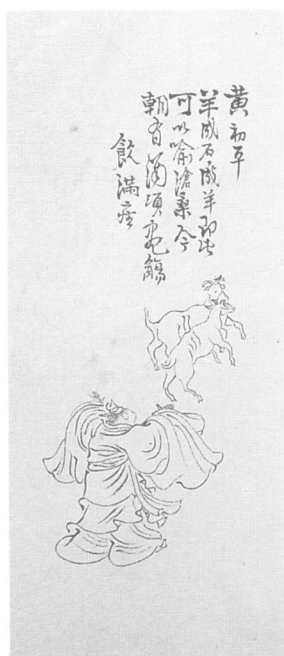 黄初平
羊成石成羊即此
可以喻滄桑今
朝有酒須飛觴
飲滿壺